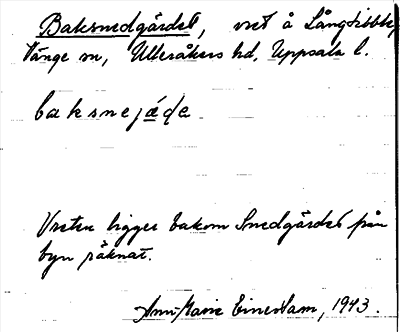 Baksmedgärdet, vret å Långtibble,
Vänge sn, Ulleråkers hd, Uppsala l.
baksnejä̀de
Vreten ligger bakom Smedgärdet från
byn räknat.
Ann-Marie Einerstam, 1943.